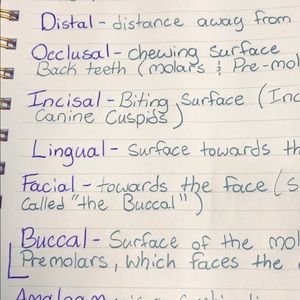 Distal - distance away from
Occlusal - chewing surface
Back teeth (molars & Pre-mol
Incisal - Biting surface (Inc
Canine Cuspids)
Lingual - surface towards th
Facial - towards the face (s
called "the Buccal")
Buccal - Surface of the mol
Premolars, which faces the